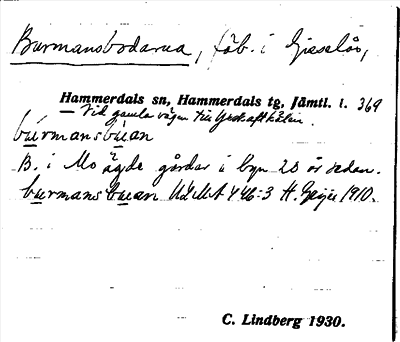 Burmansbodarna, fäb. i Gisselås,
Hammerdals sn, Hammerdals tg, Jämtl. l. 369
— Vid gamla vägen till
burmansbuan
B. i Mo ägde gårdar i byn 20 år sedan.
burmansbuan ULMA 446:3 H. Geijer 1910.
C. Lindberg 1930.